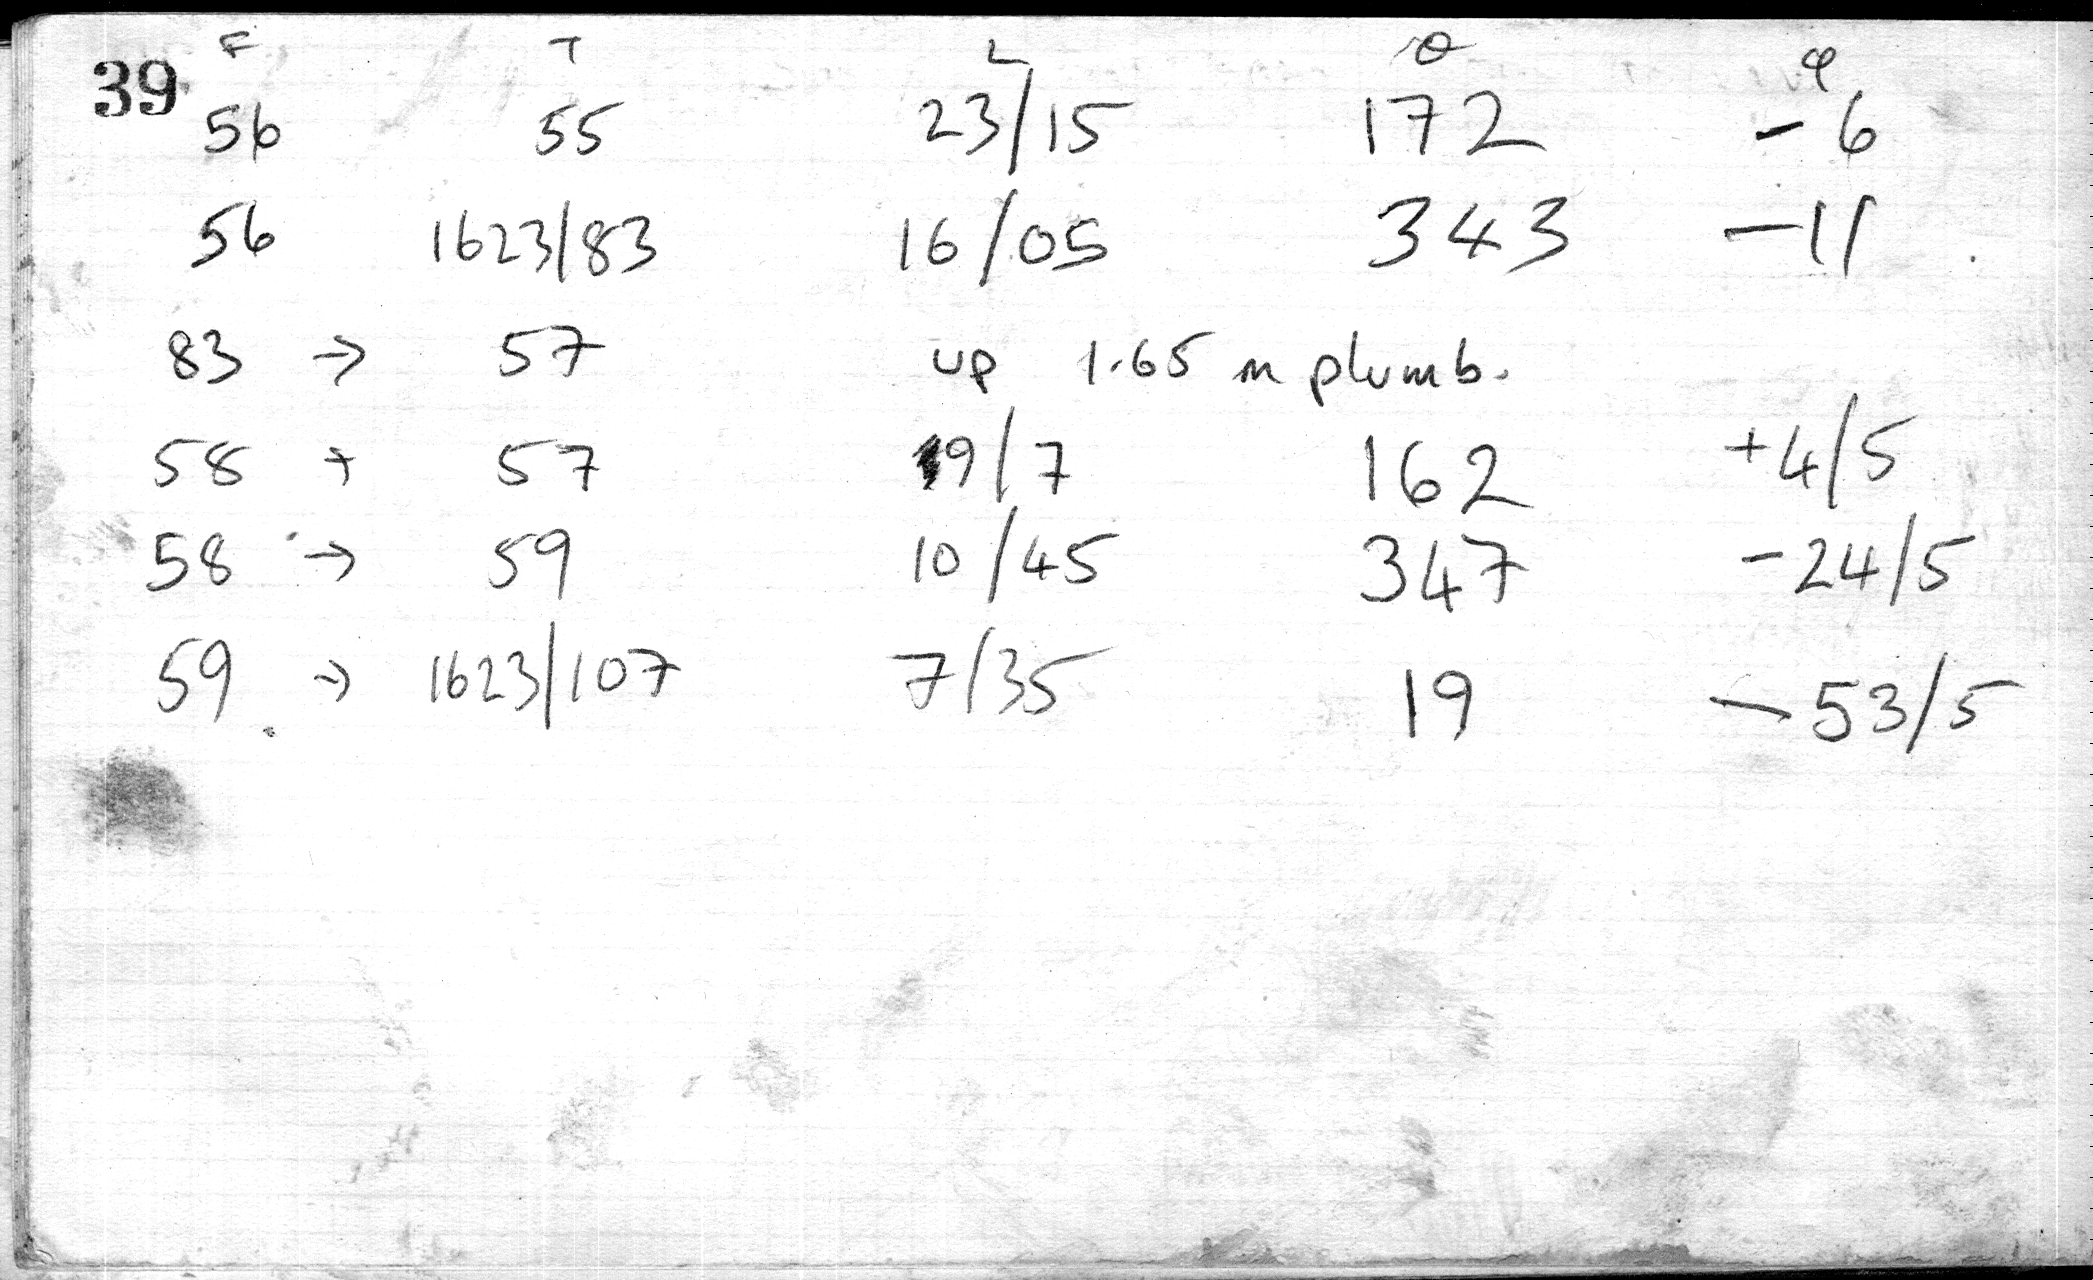 39 F T L θ φ
56 55 23/15 172 -6
56 1623/83 16/05 343 -11
83 → 57 up 1.65 m plumb.
58 → 57 9/7 162 +4/5
58 → 59 10/45 347 -24/5
59 → 1623/107 7/35 19 -53/5